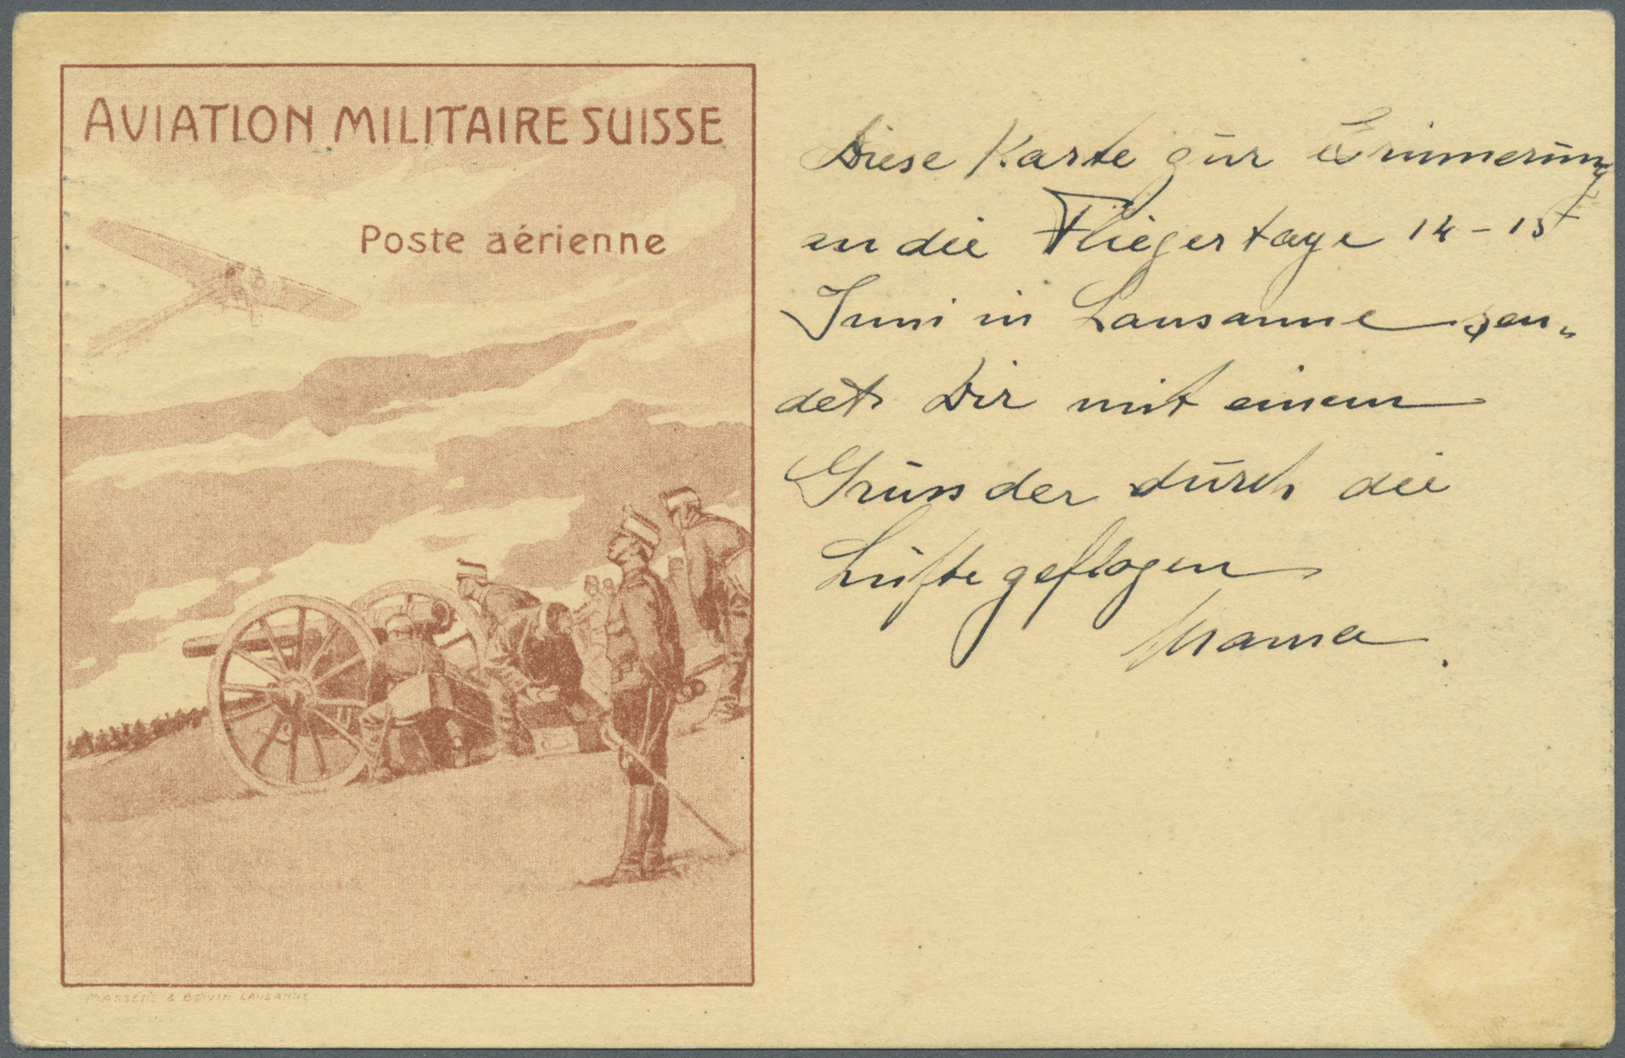 AVIATION MILITAIRE SUISSE
Poste aérienne
Diese Karte zur Erinnerung
an die Fliegertage 14-15
Juni in Lausanne sen„
det Dir mit einem
Gruss der durch die
Lüfte geflogen
Mama.
LAUSANNE